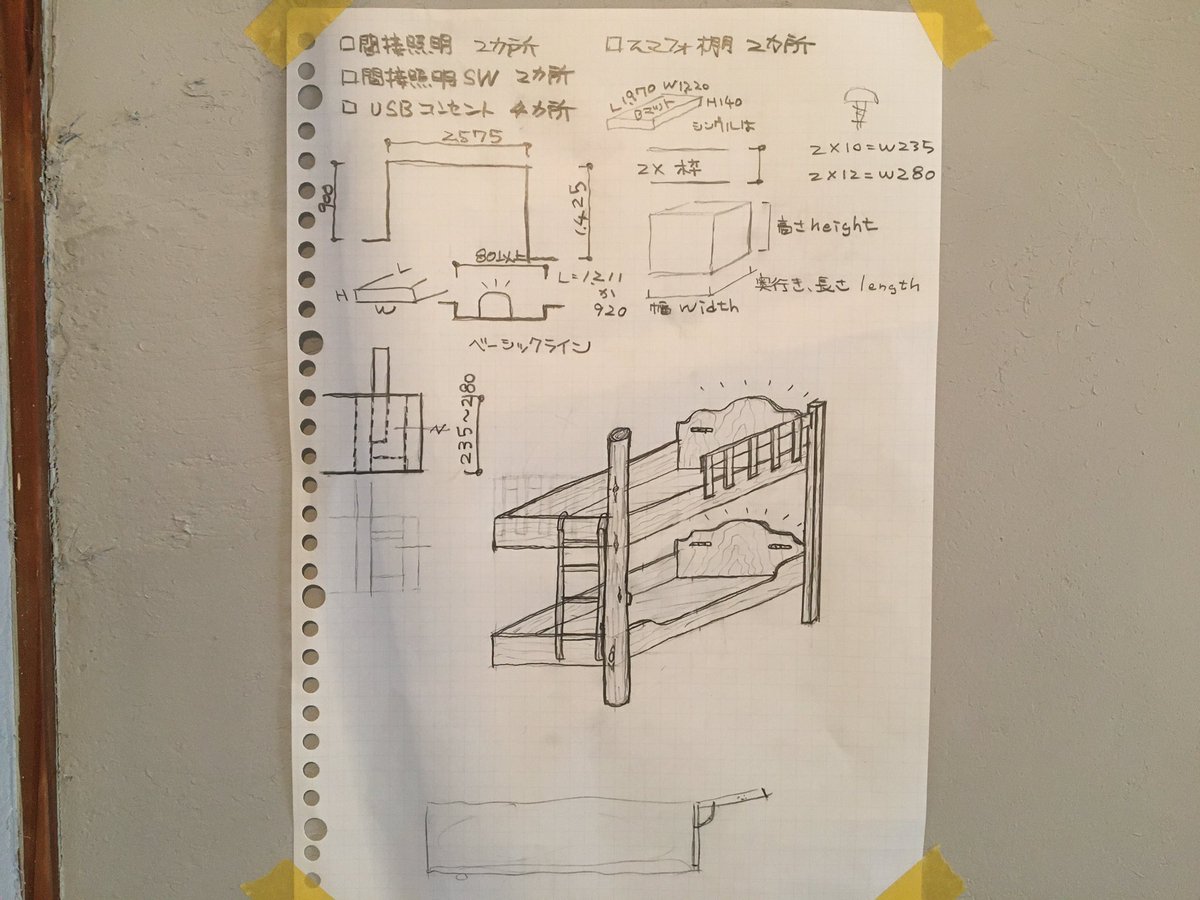 □間接照明 2カ所
□スマフォ棚 2カ所
□間接照明SW 2カ所
□USBコンセント 4カ所
L1970 W1220
H140
Bマット
シングルは
2,575
900
1,425
2×枠
2×10=W235
2×12=W280
高さheight
奥行き、長さ length
幅 width
80以上
L=1,211
か
920
L
H
W
ベーシックライン
235~280